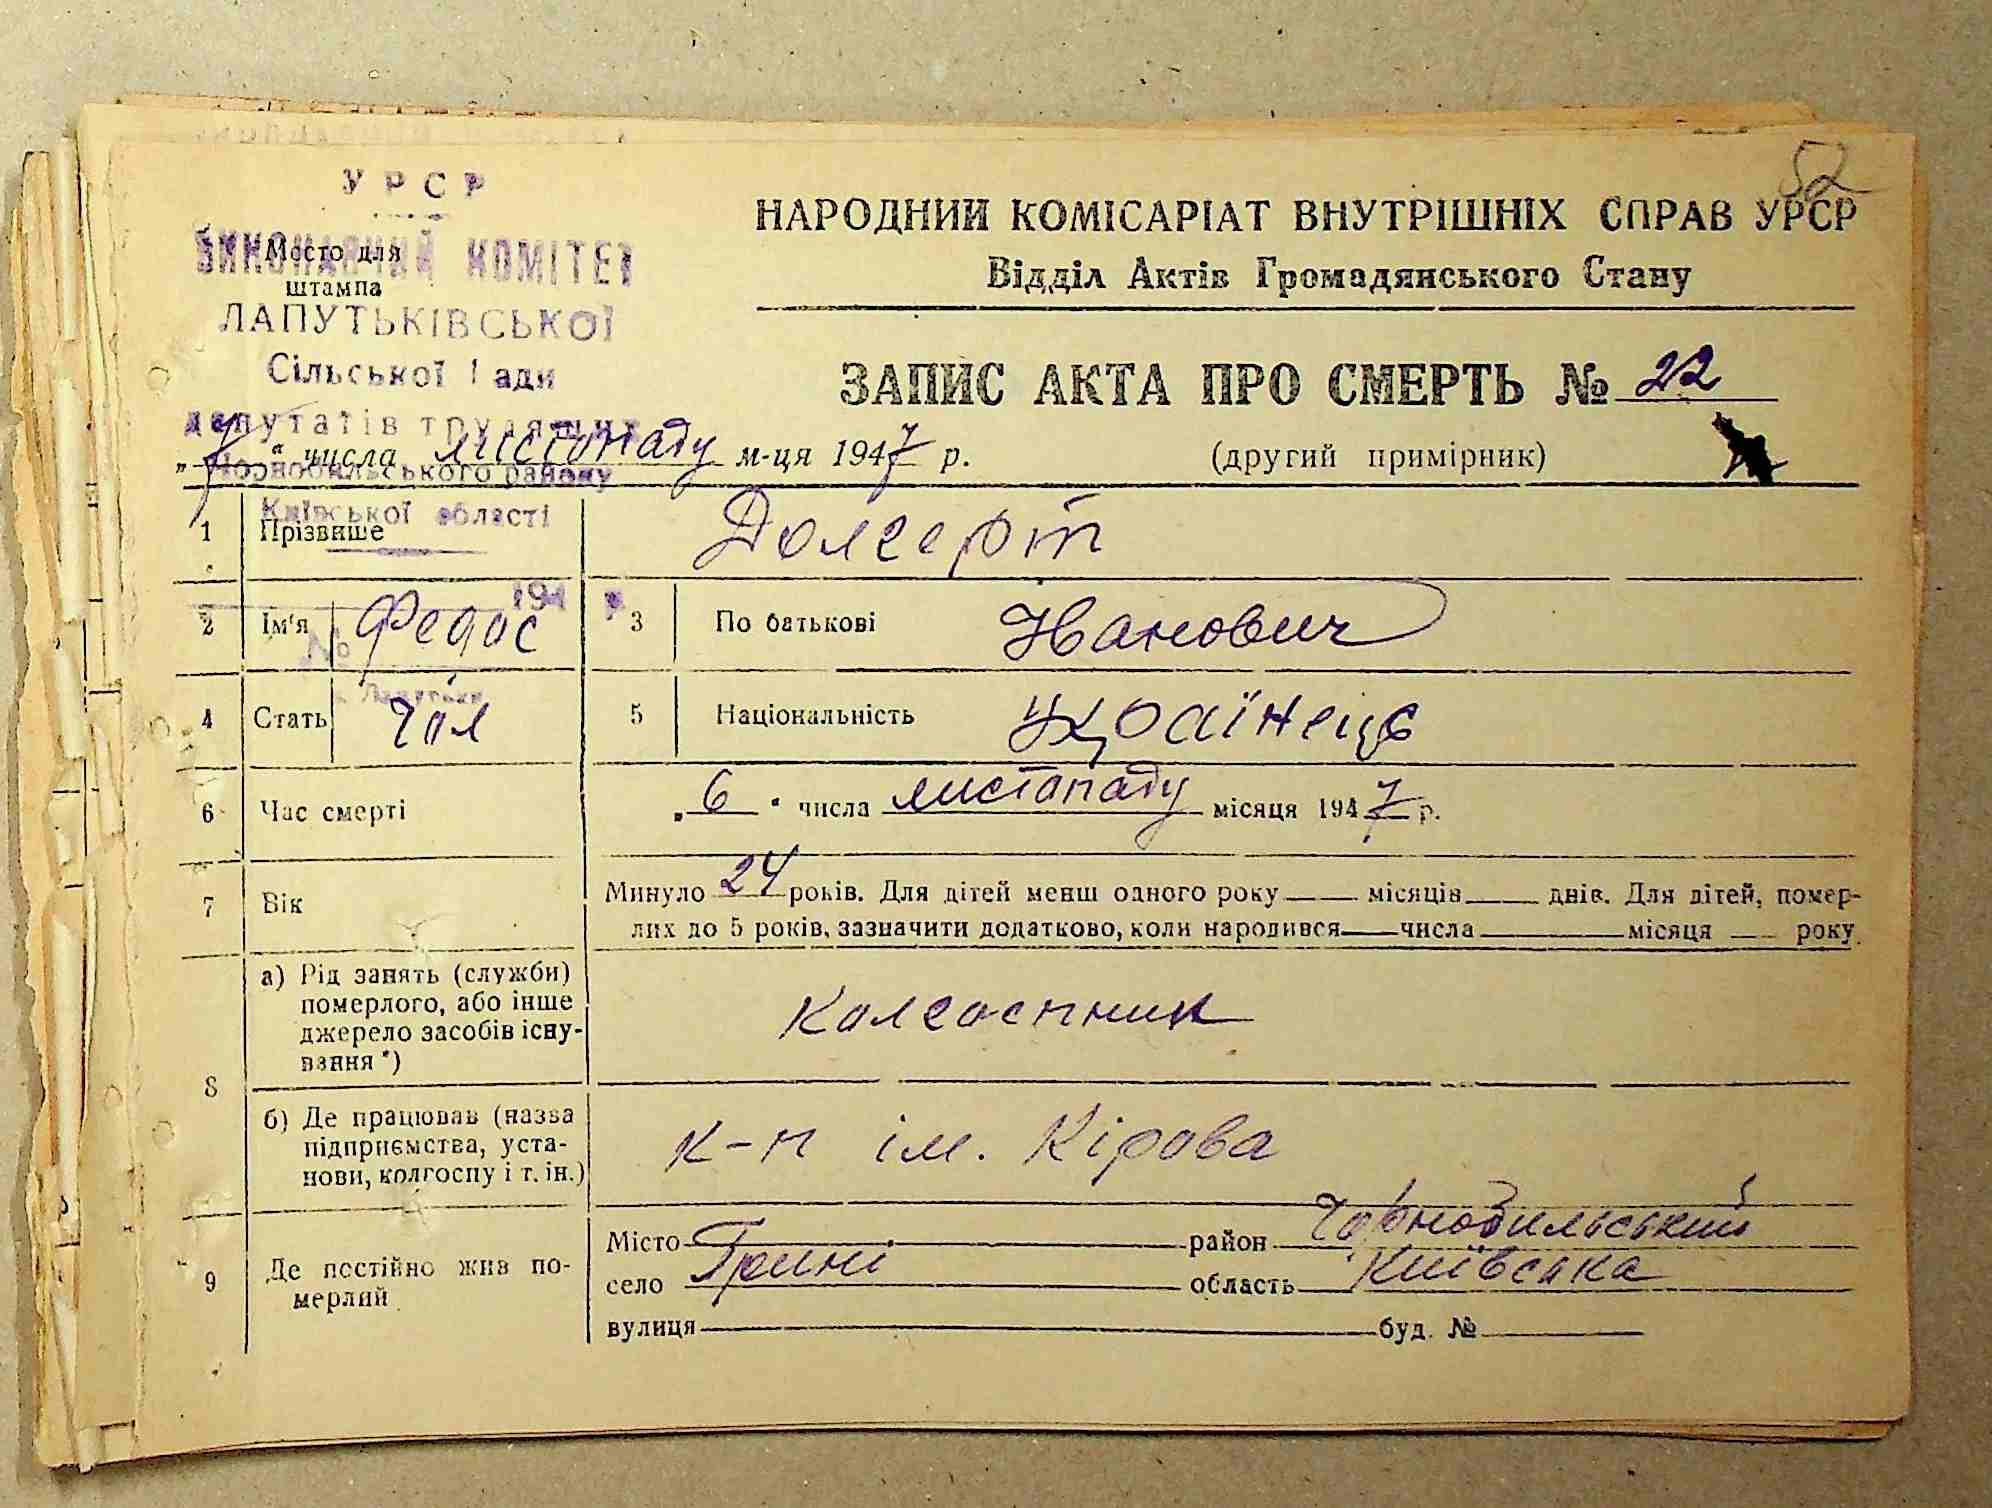 52
УРСР
ВИКОНАВЧИЙ КОМІТЕТ
Место для
штампа
ЛАПУТЬКІВСЬКОЇ
Сільської Ради
депутатів трудящих
Чорнобильського району
Київської області
194 р
№
с. Лапутьки
НАРОДНИЙ КОМІСАРІАТ ВНУТРІШНІХ СПРАВ УРСР
Відділ Актів Громадянського Стану
ЗАПИС АКТА ПРО СМЕРТЬ № 22
„7“ числа листопаду м-ця 1947 р. (другий примірник)
1 Прізвище Долгерт
2 Ім'я Федос 3 По батькові Иванович
4 Стать Чол 5 Національність Українець
6 Час смерті „6“ числа листопаду місяця 1947 р.
7 Вік Минуло 24 років. Для дітей менш одного року місяців днів. Для дітей, помер-
лих до 5 років, зазначити додатково, коли народився числа місяця року
8 а) Рід занять (служби)
померлого, або інше
джерело засобів існу-
вання*)
колгоспник
б) Де працював (назва
підприємства, уста-
нови, колгоспу і т. ін.)
к-п ім. Кірова
9 Де постійно жив по-
мерлий
Місто район Чорнобильський
село Грині область Київська
вулиця буд. №